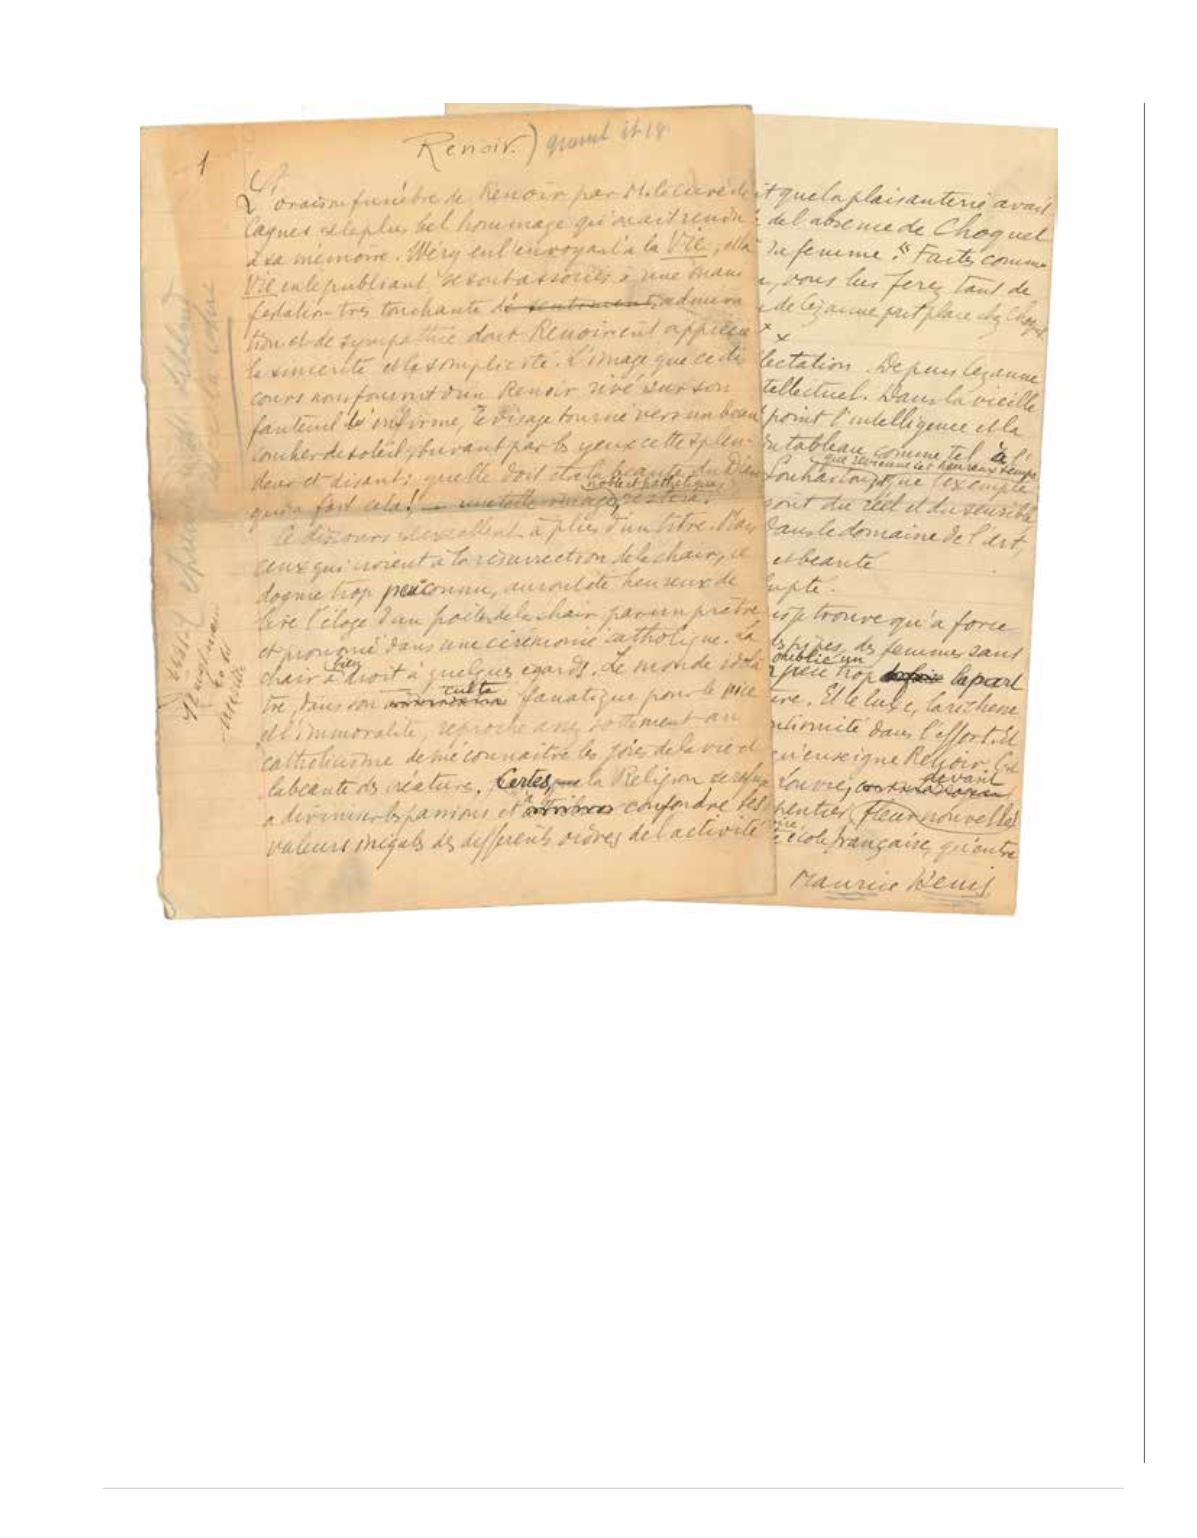 1
Renoir.)
L'oraison funèbre de Renoir par M. le curé de
Cagnes est le plus bel hommage qu'on ait rendu
à sa mémoire. Wéry en l'envoyant à la Vie, et la
Vie en le publiant se sont associés à une mani
festation très touchante de sentiment, admira
tion et de sympathie dont Renoir eut apprécié
la sincérité et la simplicité. L'image que ce dis
cours nous fournit d'un Renoir rivé sur son
fauteuil d'infirme, le visage tourné vers un beau
coucher de soleil, buvant par les yeux cette splen
deur et disant: quelle doit être la beauté du Dieu
noble et pathétique,
qui a fait cela! — une telle image, restera.
Ce discours est excellent à plus d'un titre. Mais
ceux qui croient à la résurrection de la chair, ce
dogme trop peu connu, auront été heureux de
lire l'éloge d'un poète de la chair par un prêtre
et prononcé dans une cérémonie catholique. La
bien
chair a droit à quelques égards. Le monde idolâ
culte
tre, dans son fanatique pour le vice
et l'immoralité, reproche assez sottement au
catholicisme de méconnaître les joies de la vie et
la beauté des créatures. Certes, la Religion se refuse
à diviniser les passions et à confondre les
valeurs inégales des différents ordres de l'activité
it que la plaisanterie avait
de l'absence de Choquet
sa femme: "Faites comme
, vous lui ferez tant de
de Cezanne prit place chez Choquet
x x
lectation. Depuis Cezanne
tellectuel. Dans la vieille
point l'intelligence et la
du tableau comme tel, à l'
que reviennent les heureux temps
Souhaitons que l'exemple
goût du réel et du sensible
dans le domaine de l'art,
et beauté
mpte.
trouve qu'à force
des pipes, des femmes sans
oublié un
peu trop la part
ure. Et le luxe, la richesse
dans l'effort. Et
qu'enseigne Renoir. Au
devant
Louvre,
pentier, fleur nouvelle
école française, qu'entre
Maurice Denis